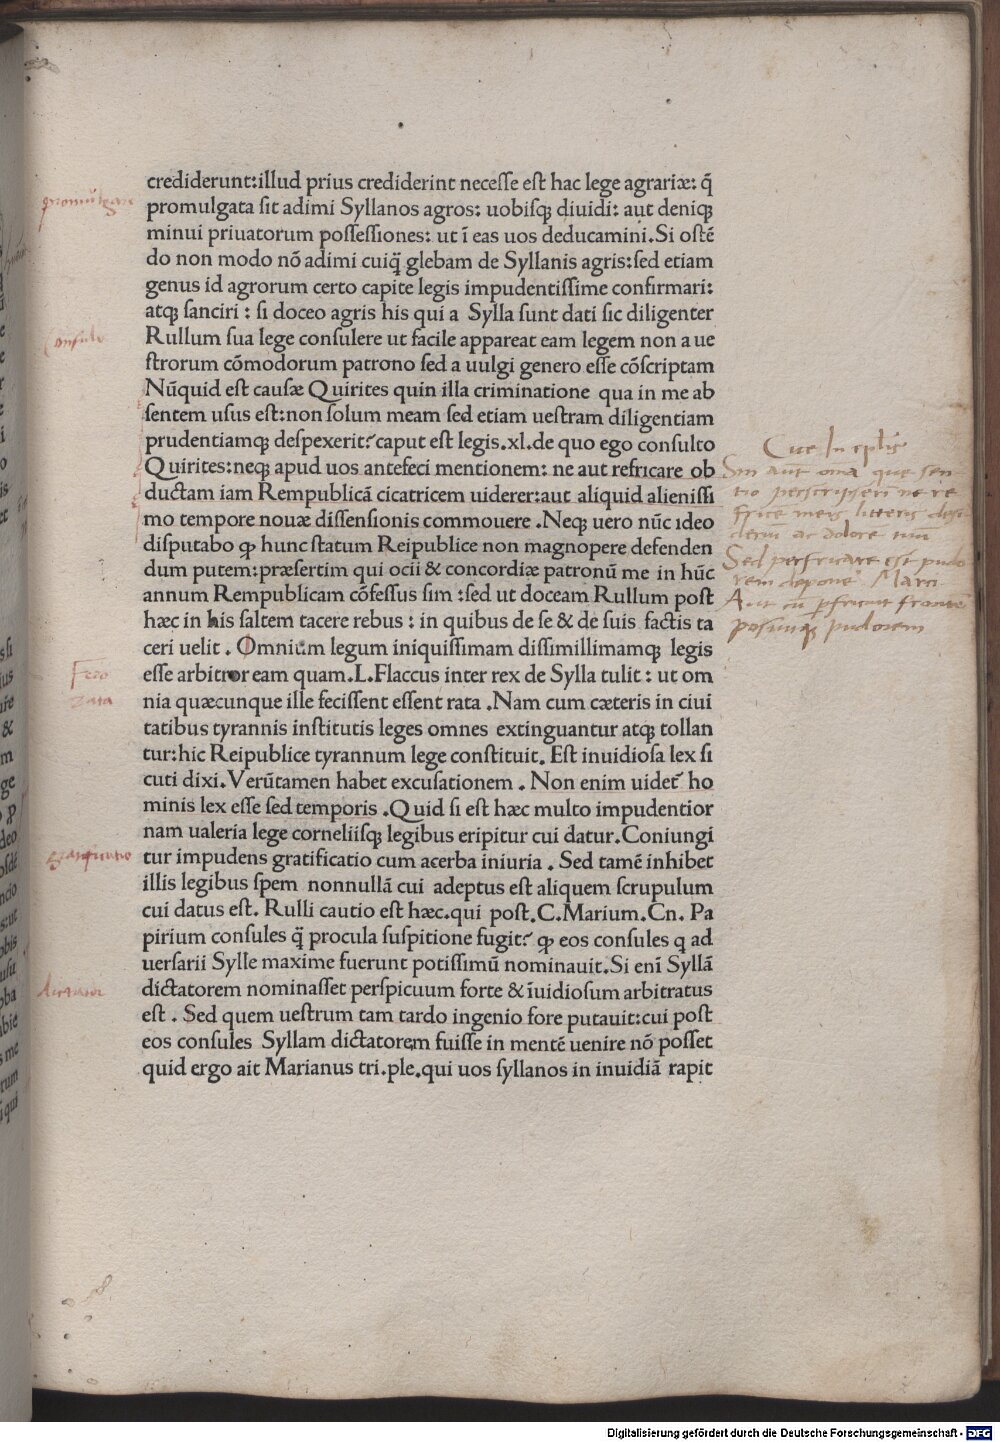 crediderunt:illud prius crediderint necesse est hac lege agrariæ: q̃
promulgata sit adimi Syllanos agros: uobisq; diuidi: aut deniq;
minui priuatorum possessiones: ut ĩ eas uos deducamini.Si ostẽ
do non modo nõ adimi cuiq̃ glebam de Syllanis agris:sed etiam
genus id agrorum certo capite legis impudentissime confirmari:
atq; sanciri : si doceo agris his qui a Sylla sunt dati sic diligenter
Rullum sua lege consulere ut facile appareat eam legem non a ue
strorum cõmodorum patrono sed a uulgi genero esse cõscriptam
Nũquid est causæ Quirites quin illa criminatione qua in me ab
sentem usus est:non solum meam sed etiam uestram diligentiam
prudentiamq; despexerit?caput est legis.xl.de quo ego consulto
Quirites:neq; apud uos antefeci mentionem: ne aut refricare ob
ductam iam Rempublicã cicatricem uiderer:aut aliquid alienissi
mo tempore nouæ dissensionis commouere .Neq; uero nũc ideo
disputabo ꝙ hunc statum Reipublice non magnopere defenden
dum putem:præsertim qui ocii & concordiæ patronũ me in hũc
annum Rempublicam cõfessus sim :sed ut doceam Rullum post
hæc in his saltem tacere rebus : in quibus de se & de suis factis ta
ceri uelit . Omnium legum iniquissimam dissimillimamq; legis
esse arbitror eam quam.L.Flaccus inter rex de Sylla tulit : ut om
nia quæcunque ille fecissent essent rata .Nam cum cæteris in ciui
tatibus tyrannis institutis leges omnes extinguantur atq; tollan
tur:hic Reipublice tyrannum lege constituit. Est inuidiosa lex si
cuti dixi.Verũtamen habet excusationem . Non enim uidet᷑ ho
minis lex esse sed temporis .Quid si est hæc multo impudentior
nam ualeria lege corneliisq; legibus eripitur cui datur.Coniungi
tur impudens gratificatio cum acerba iniuria . Sed tamẽ inhibet
illis legibus spem nonnullã cui adeptus est aliquem scrupulum
cui datus est. Rulli cautio est hæc.qui post.C.Marium.Cn. Pa
pirium consules q̃ procula suspitione fugit? ꝙ eos consules q ad
uersarii Sylle maxime fuerunt potissimũ nominauit.Si enĩ Syllã
dictatorem nominasset perspicuum forte & ĩuidiosum arbitratus
est . Sed quem uestrum tam tardo ingenio fore putauit:cui post
eos consules Syllam dictatorem fuisse in mentẽ uenire nõ posset
quid ergo ait Marianus tri.ple.qui uos syllanos in inuidiã rapit
promulgare
Consulo
Fero
rata
gratificatio
Dictator
Cice In eplis
Sin aũt oĩa que sen
tio perscripserĩ ne re
frice meis litteris desi
deriũ ac dolore tuũ
Sed perfricare est pudo
rem depone Marci
Aut cũ perfricuit frontẽ
posuitq; pudorem
Digitalisierung gefördert durch die Deutsche Forschungsgemeinschaft - DFG